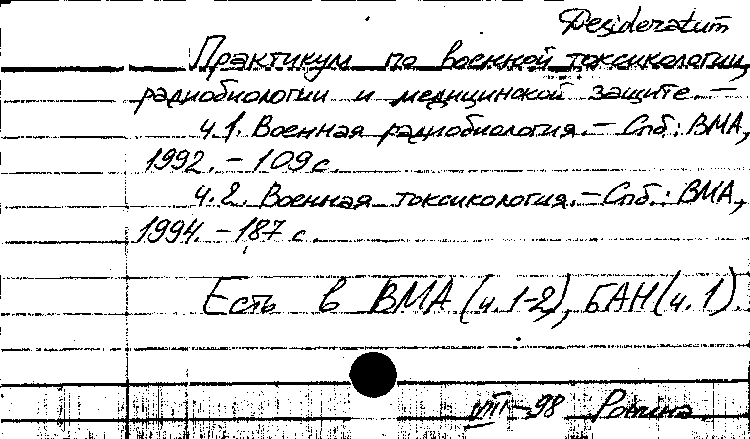 Desideratum
Практикум по военной токсикологии,
радиобиологии и медицинской защите. —
ч.1. Военная радиобиология. – Спб.: ВМА,
1992. – 109 с.
ч.2. Военная токсикология. – Спб.: ВМА,
1994. – 187 с.
Есть в ВМА (ч.1-2), БАН (ч.1).
VIII – 98